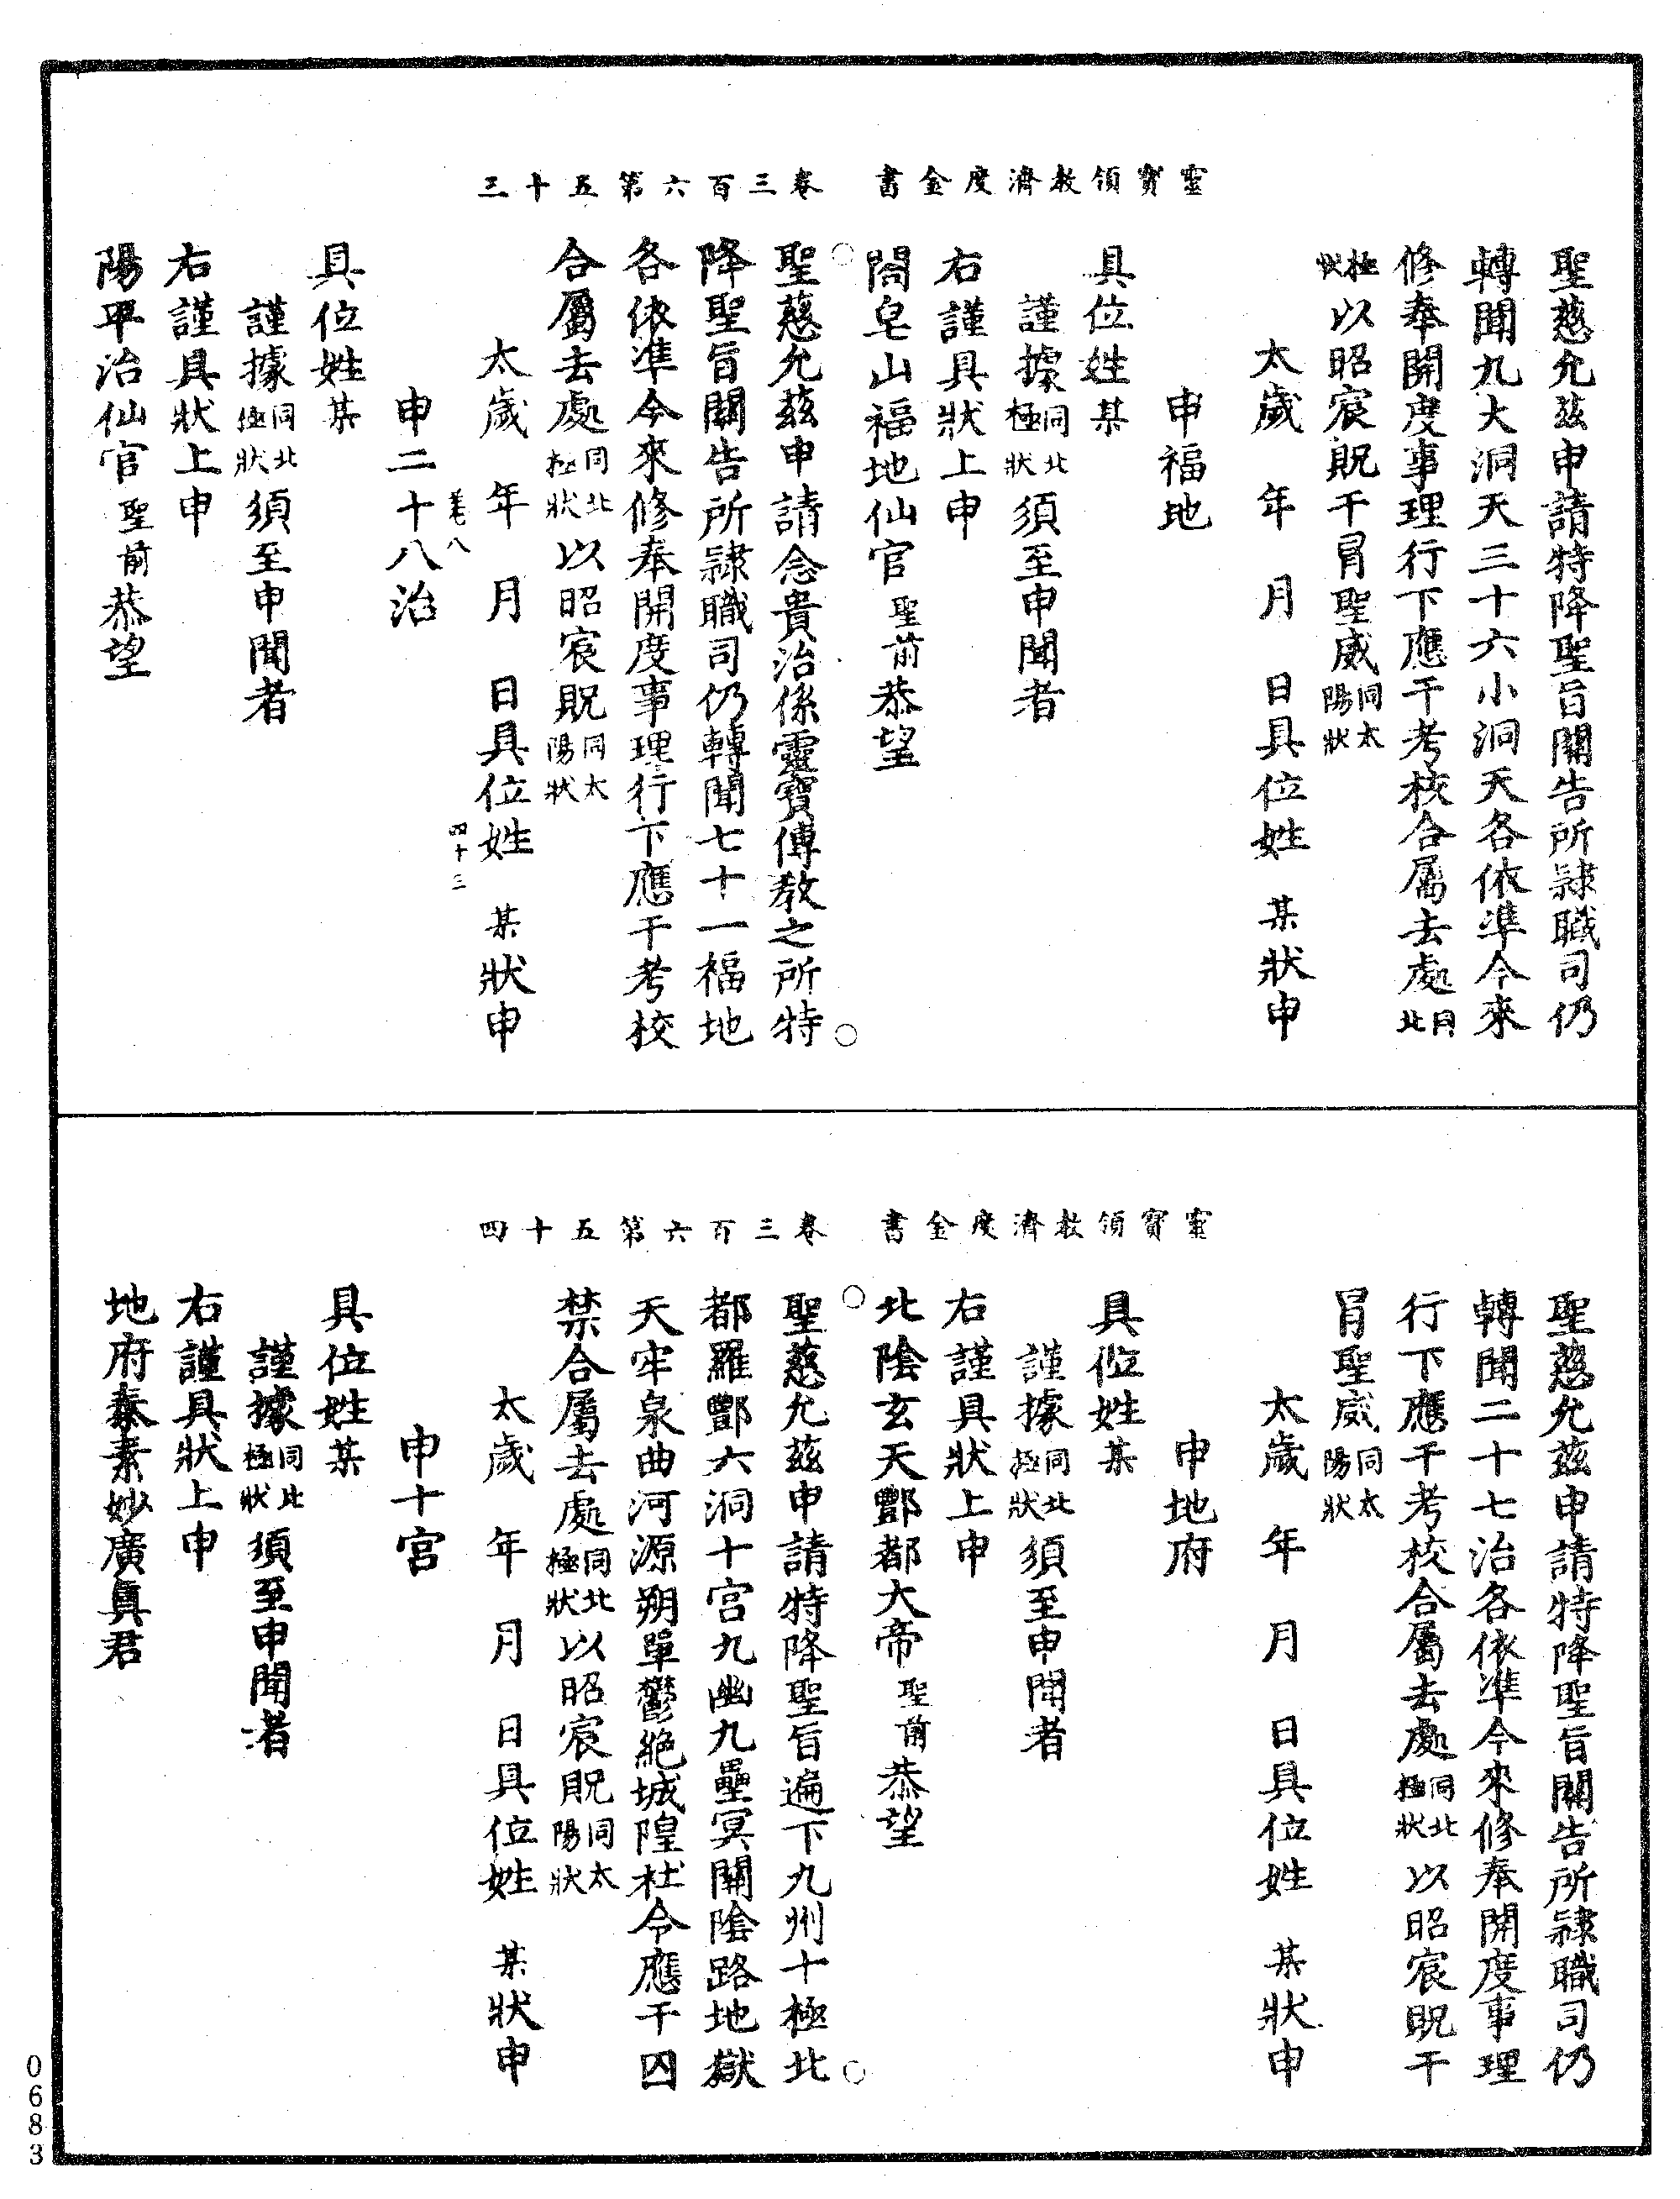 靈寶領教濟度金書　卷三百六第五十三
聖慈允茲申請特降聖旨關告所隷職司仍
轉聞九大洞天三十六小洞天各依準今來
修奉開度事理行下應干考校合屬去處同北
極狀以昭宸貺干冐聖威同太陽狀
太歲　年　月　日具位姓　某狀申
申福地
具位姓某
謹據同北極狀須至申聞者
右謹具狀上申
閤皂山福地仙官聖前恭望
聖慈允茲申請念貴治係靈寶傳教之所特
降聖旨關告所隷職司仍轉聞七十一福地
各依準今來修奉開度事理行下應干考校
合屬去處同北極狀以昭宸貺同太陽狀
太歲　年　月　日具位姓　某狀申
羗八　四十三
申二十八治
具位姓某
謹據同北極狀須至申聞者
右謹具狀上申
陽平治仙官聖前恭望
靈寶領教濟度金書　卷三百六第五十四
聖慈允茲申請特降聖旨關告所隷職司仍
轉聞二十七治各依準今來修奉開度事理
行下應干考校合屬去處同北極狀以昭宸貺干
冐聖威同太陽狀
太歲　年　月　日具位姓　某狀申
申地府
具位姓某
謹據同北極狀須至申聞者
右謹具狀上申
北陰玄天酆都大帝聖前恭望
聖慈允茲申請特降聖旨遍下九州十極北
都羅酆六洞十宮九幽九壘冥關陰路地獄
天牢泉曲河源朔單鬱絕城隍杜令應干囚
禁合屬去處同北極狀以昭宸貺同太陽狀
太歲　年　月　日具位姓　某狀申
申十宮
具位姓某
謹據同北極狀須至申聞者
右謹具狀上申
地府泰素妙廣眞君
0683